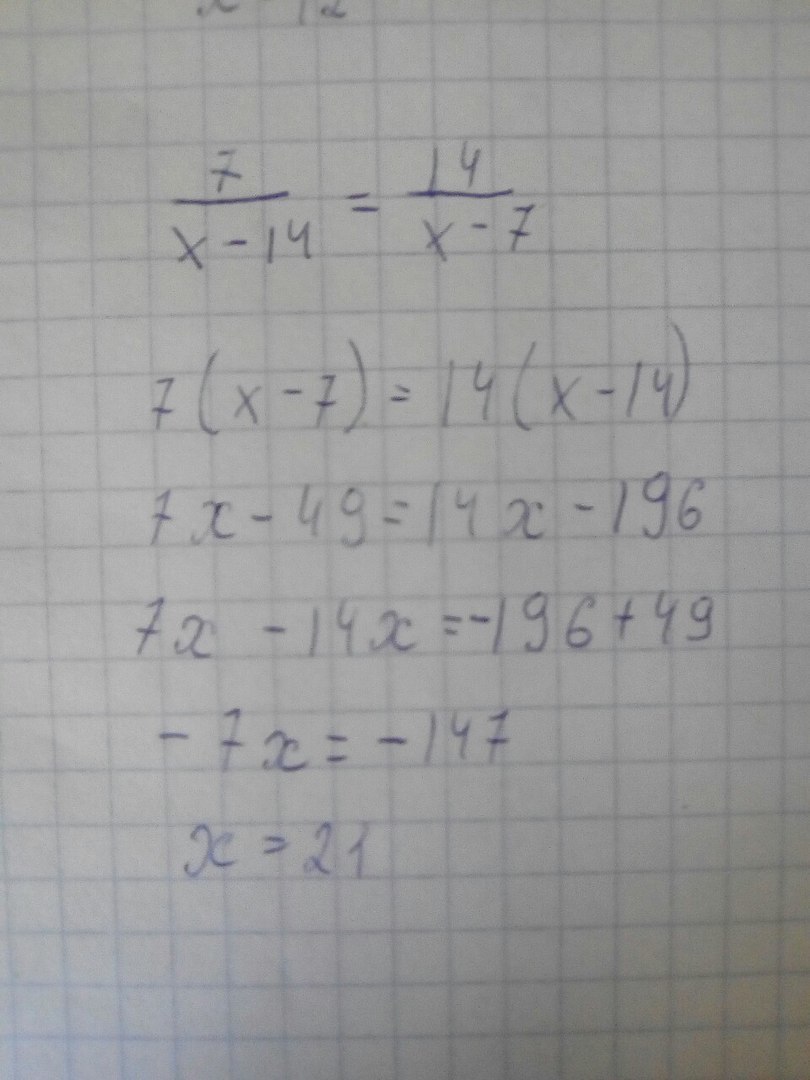 7/(x-14) = 14/(x-7)
7(x-7)=14(x-14)
7x-49=14x-196
7x -14x=-196+49
-7x=-147
x=21